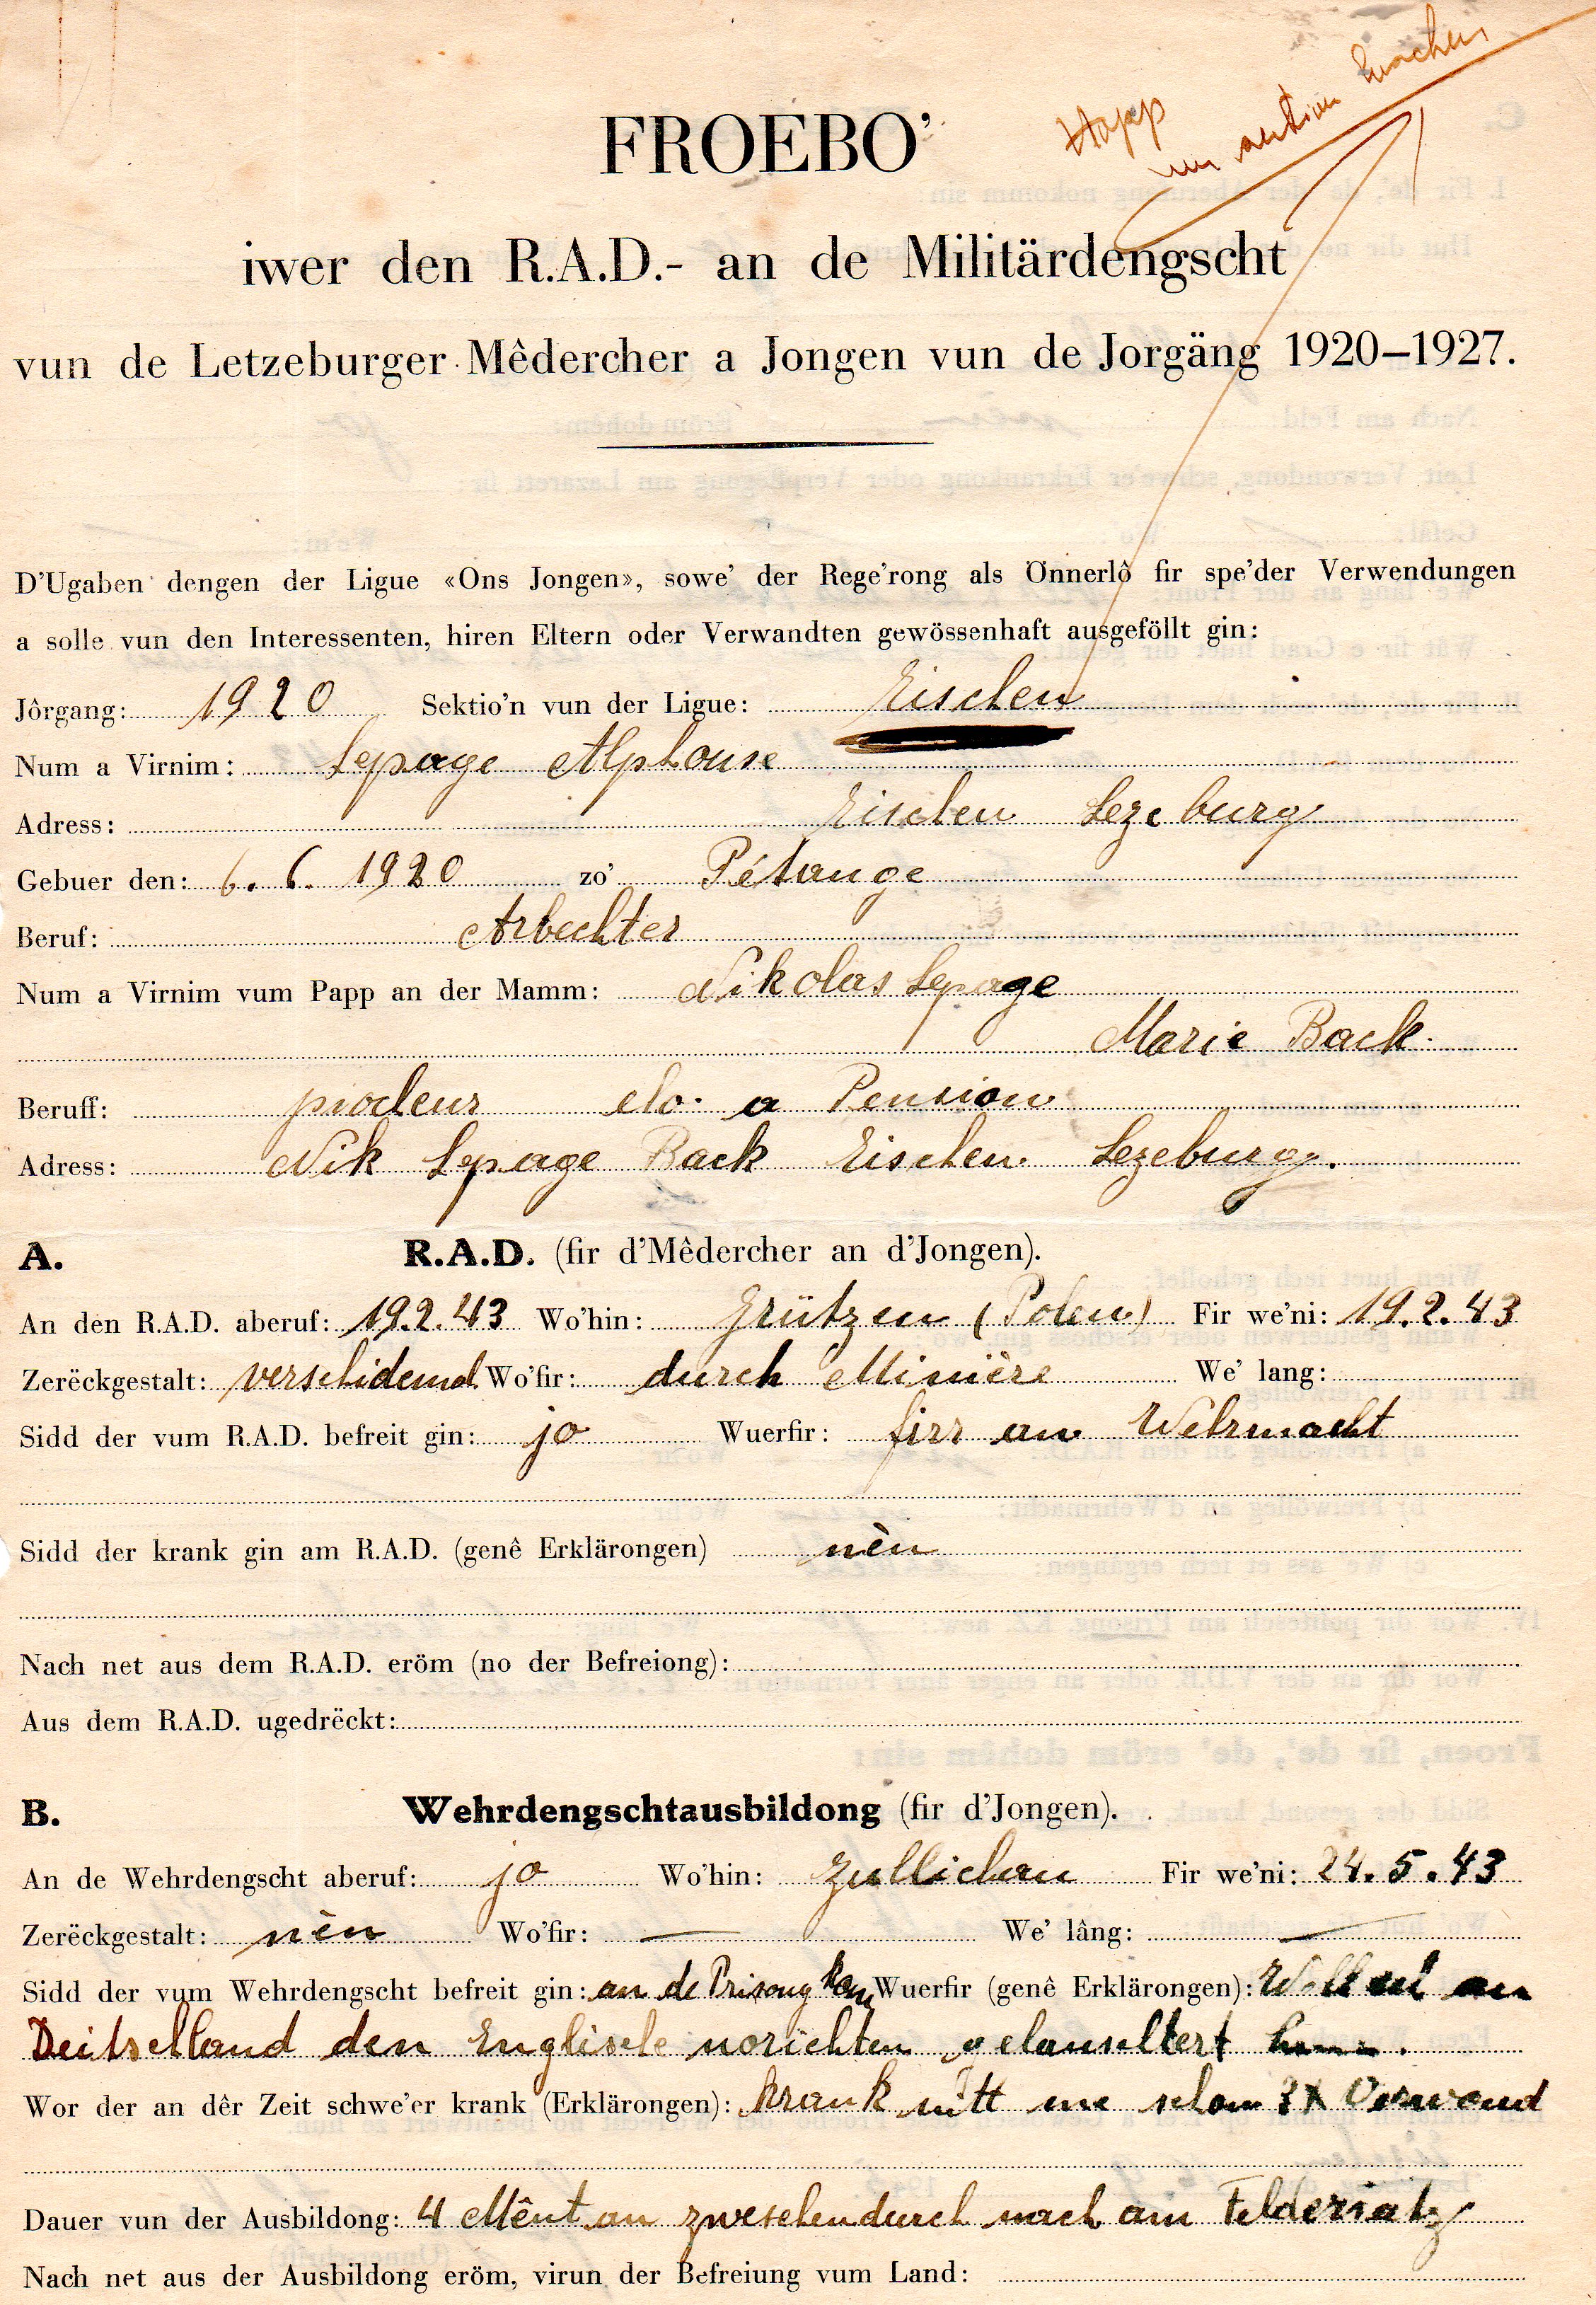 Happ
um sektion
FROEBO'
iwer den R.A.D.- an de Militärdengscht
vun de Letzeburger Mêdercher a Jongen vun de Jorgäng 1920–1927.
D'Ugaben dengen der Ligue «Ons Jongen», sowe' der Rege'rong als Önnerlô fir spe'der Verwendungen
a solle vun den Interessenten, hiren Eltern oder Verwandten gewössenhaft ausgeföllt gin:
Jôrgang: 1920 Sektio'n vun der Ligue: Eischen
Num a Virnim: Lepage Alphonse
Adress: Eischen Lezeburg
Gebuer den: 6. 6. 1920 zo' Pétange
Beruf: Arbechter
Num a Virnim vum Papp an der Mamm: Nikolas Lepage
Marie Back.
Beruff: elo a Pension
Adress: Nik Lepage Back Eischen Lezeburg.
A. R.A.D. (fir d'Mêdercher an d'Jongen).
An den R.A.D. aberuf: 19.2.43 Wo'hin: Grützen (Polen) Fir we'ni: 19.2.43
Zerëckgestalt: verschidemol Wo'fir: durch Minière We' lang:
Sidd der vum R.A.D. befreit gin: jo Wuerfir: firr an Wehrmacht
Sidd der krank gin am R.A.D. (genê Erklärongen) nèn
Nach net aus dem R.A.D. eröm (no der Befreiong):
Aus dem R.A.D. ugedrëckt:
B. Wehrdengschtausbildong (fir d'Jongen).
An de Wehrdengscht aberuf: jo Wo'hin: Zullichau Fir we'ni: 24.5.43
Zerëckgestalt: nèn Wo'fir: — We' lâng: —
Sidd der vum Wehrdengscht befreit gin: an de Prisong Wuerfir (genê Erklärongen): an
Deitschland den Englische norichten gelauschtert hun.
Wor der an dêr Zeit schwe'er krank (Erklärongen): krank nitt me schon 3X Verwond
Dauer vun der Ausbildong: 4 Mênt an zweschendurch nach am Felderiatz
Nach net aus der Ausbildong eröm, virun der Befreiung vum Land: